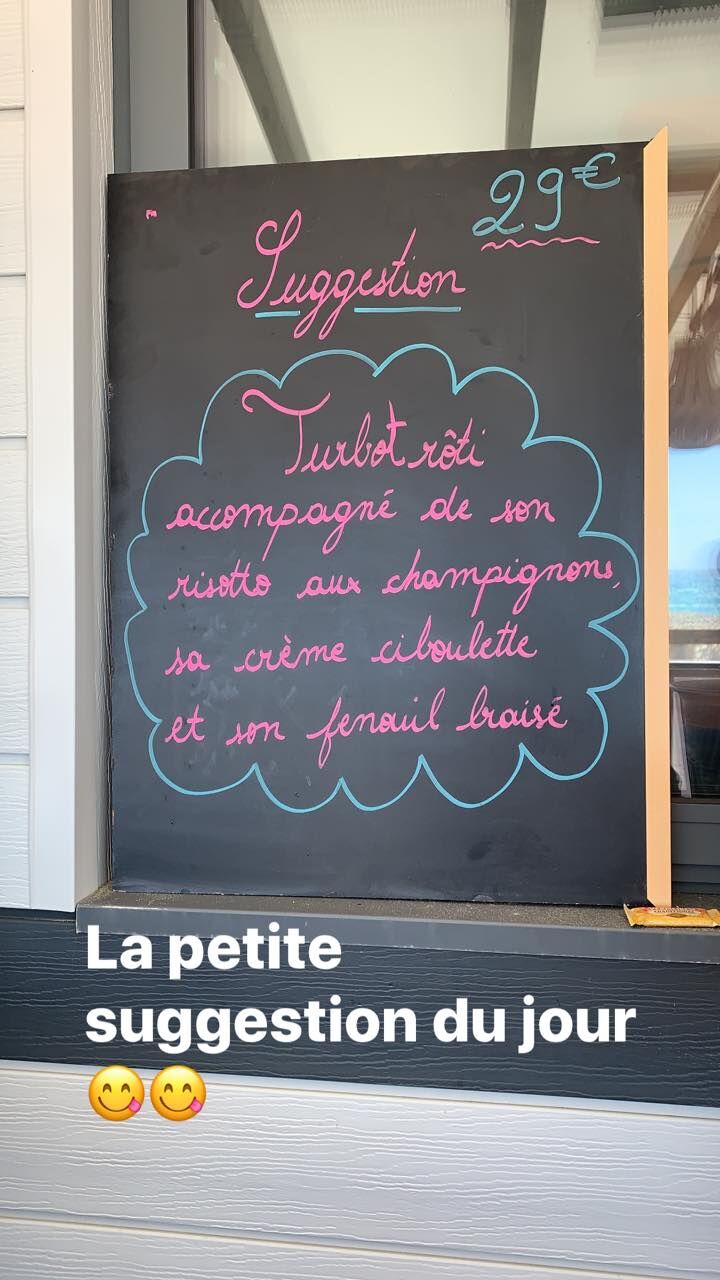 29€
Suggestion
Turbot rôti
accompagné de son
risotto aux champignons,
sa crème ciboulette
et son fenouil braisé
La petite
suggestion du jour
😋😋